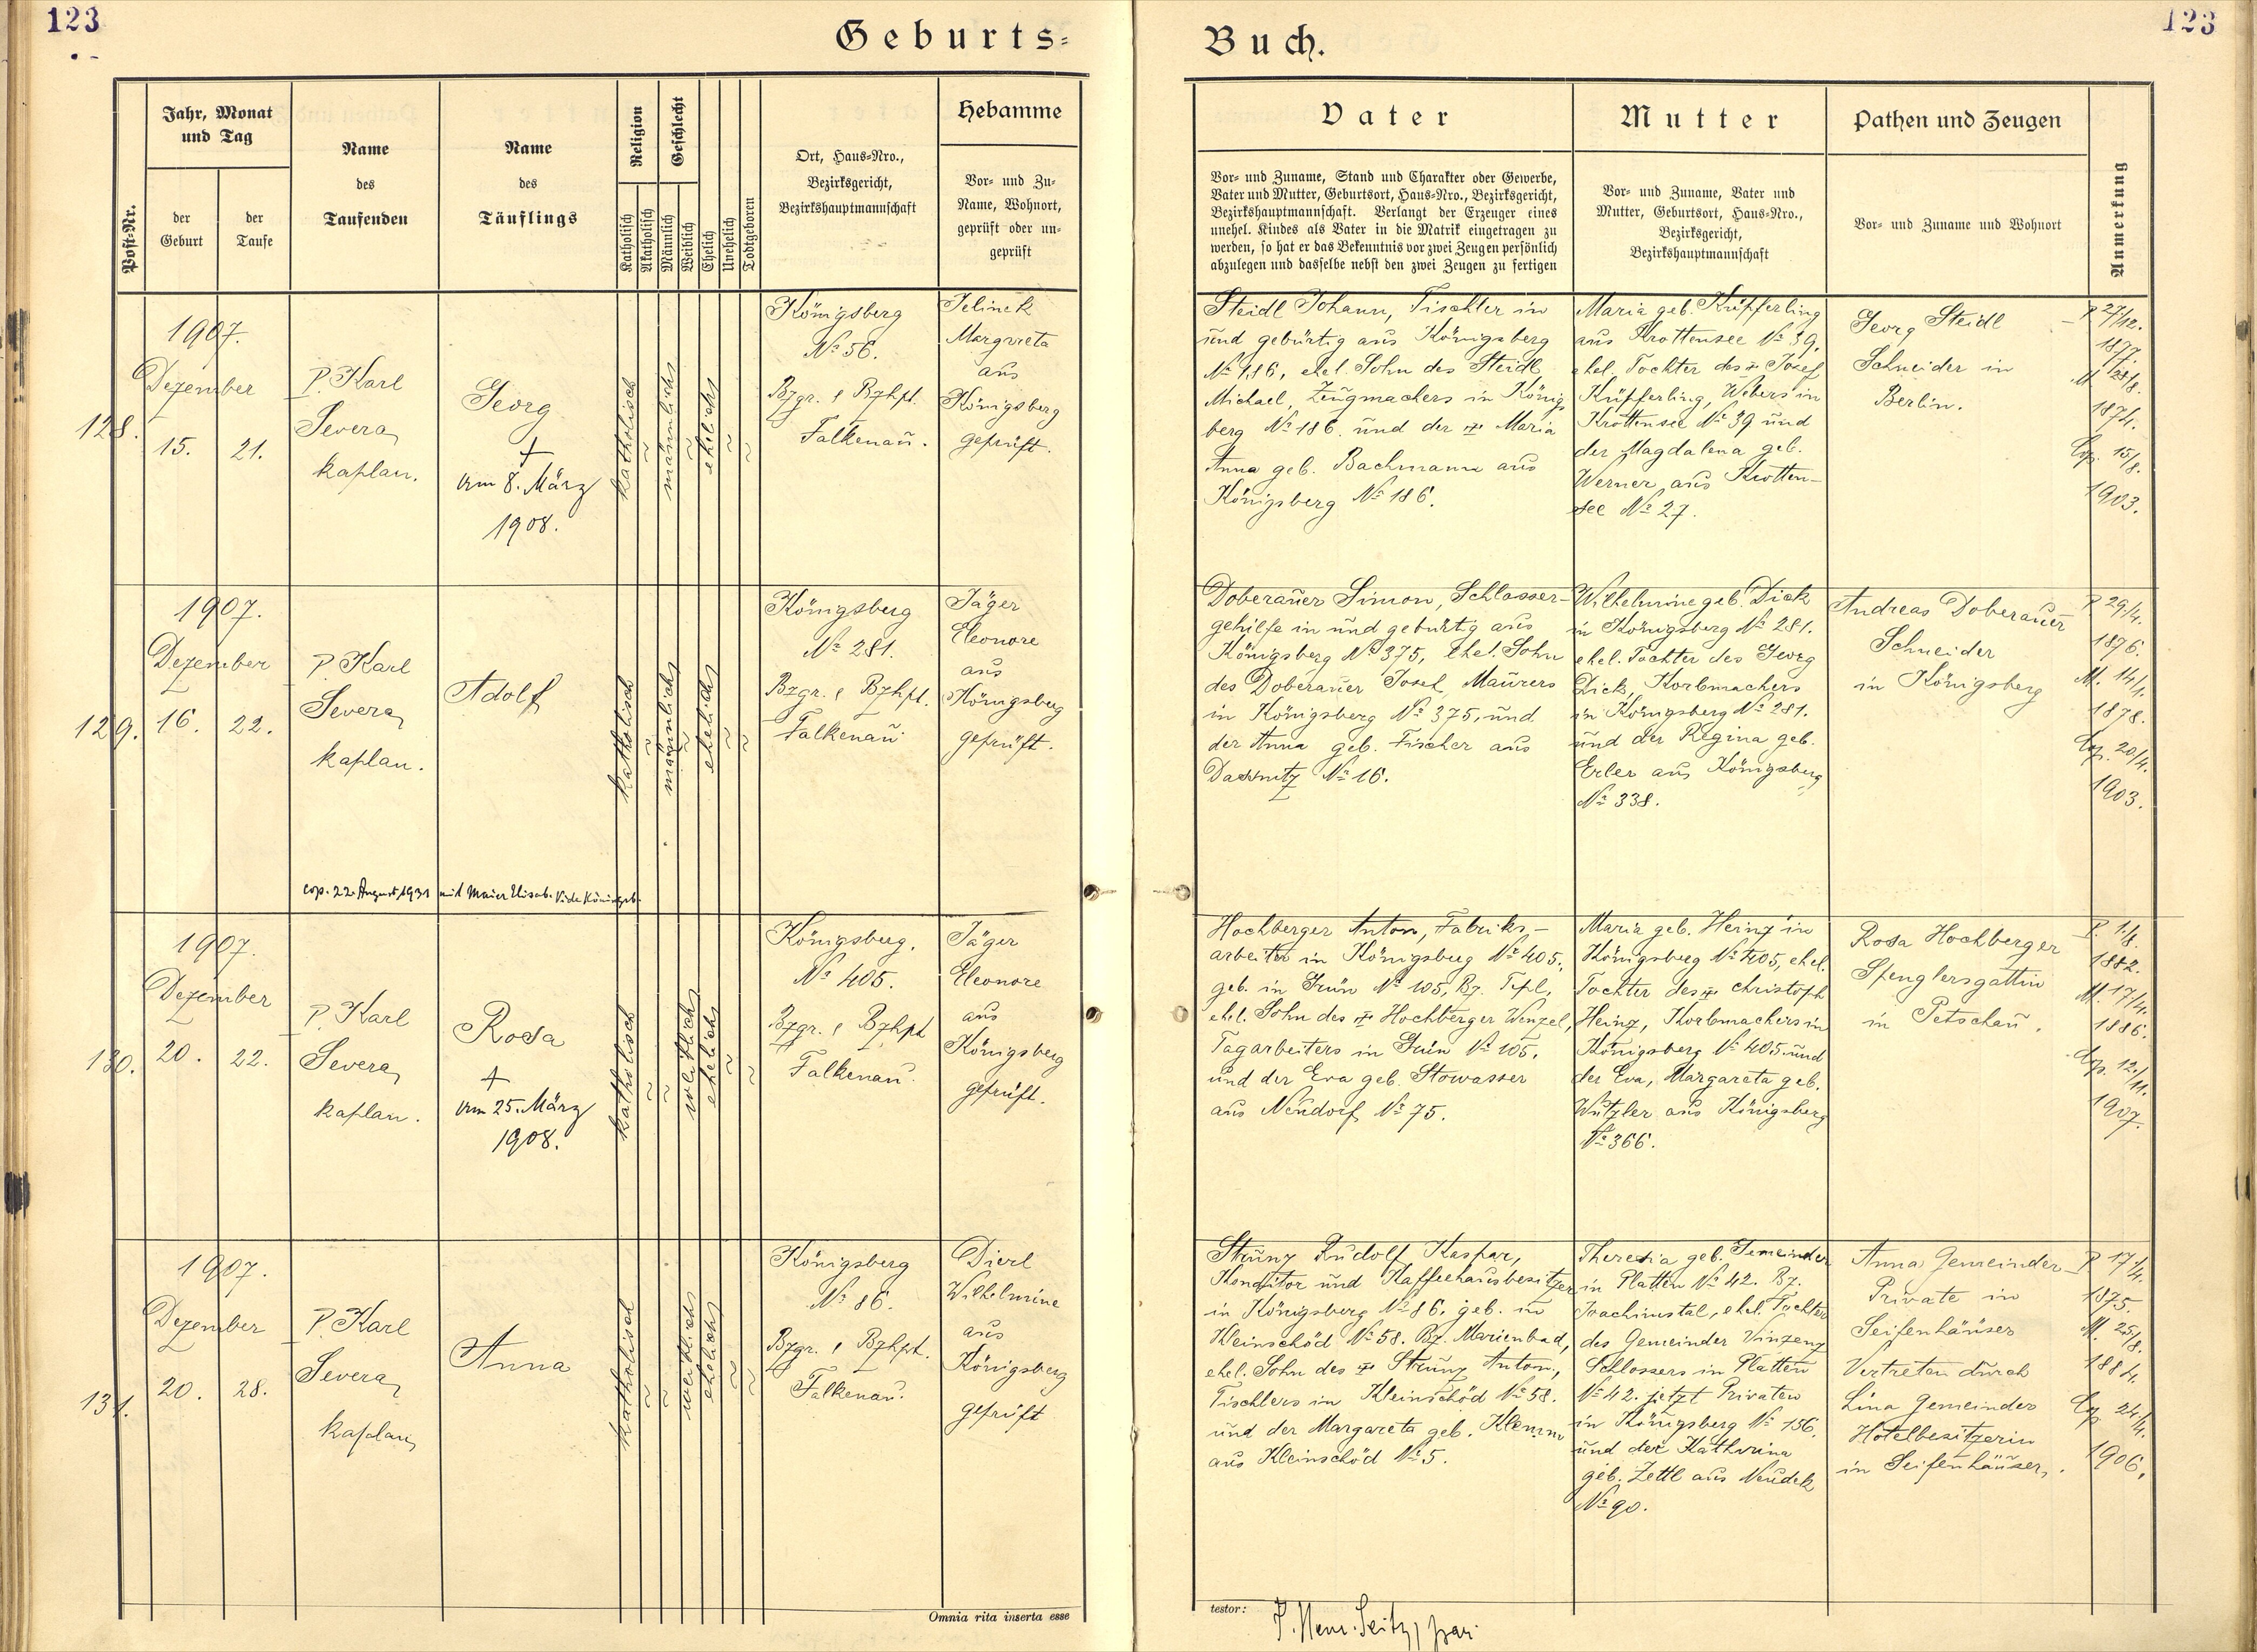 123
123
Geburts=
Buch.
Post-Nr.
Jahr, Monat
und Tag
der
Geburt
der
Taufe
Name
des
Taufenden
Name
des
Täuflings
Religion
Katholisch
Akatholisch
Geschlecht
Männlich
Weiblich
Ehelich
Unehelich
Todtgeboren
Ort, Haus-Nro.,
Bezirksgericht,
Bezirkshauptmannschaft
Hebamme
Vor- und Zu-
Name, Wohnort,
geprüft oder un-
geprüft
Vater
Vor- und Zuname, Stand und Charakter oder Gewerbe,
Vater und Mutter, Geburtsort, Haus-Nro., Bezirksgericht,
Bezirkshauptmannschaft. Verlangt der Erzeuger eines
unehel. Kindes als Vater in die Matrik eingetragen zu
werden, so hat er das Bekenntnis vor zwei Zeugen persönlich
abzulegen und dasselbe nebst den zwei Zeugen zu fertigen
Mutter
Vor- und Zuname, Vater und
Mutter, Geburtsort, Haus-Nro.,
Bezirksgericht,
Bezirkshauptmannschaft
Pathen und Zeugen
Vor- und Zuname und Wohnort
Anmerkung
128.
1907.
Dezember
15. 21.
P. Karl
Severa,
kaplan.
Georg
+
am 8. März
1908.
katholisch
männlich
ehelich
Königsberg
No 56.
Bzgr. & Bzhpt.
Falkenau.
Jelinek
Margareta
aus
Königsberg
geprüft.
Steidl Johann, Tischler in
und gebürtig aus Königsberg
No 186, ehel. Sohn des Steidl
Michael, Zeugmachers in Königs
berg No 186. und der Maria
Anna geb. Bachmann aus
Königsberg No 186.
Maria geb. Küpferling
aus Krottensee No 39,
ehel. Tochter des Josef
Küpferling, Webers in
Krottensee No 39 und
der Magdalena geb.
Werner aus Krotten-
see No 27.
Georg Steidl
Schneider in
Berlin.
P. 27/12.
1877.
M. 28/8.
1874.
Cop. 15/8.
1903.
129.
1907.
Dezember
16. 22.
P. Karl
Severa,
kaplan.
Adolf
cop. 22. August 1931 mit Maier Elisab. Vide Königsb.
katholisch
männlich
ehelich
Königsberg
No 281.
Bzgr. & Bzhpt.
Falkenau
Jäger
Eleonore
aus
Königsberg
geprüft.
Doberauer Simon, Schlosser-
gehilfe in und gebürtig aus
Königsberg No 375, ehel. Sohn
des Doberauer Josef, Maurers
in Königsberg No 375, und
der Anna geb. Fischer aus
No 16.
Wilhelmine geb. Dick
in Königsberg No 281.
ehel. Tochter des Georg
Dick, Korbmachers
in Königsberg No 281.
und der Regina geb.
Erler aus Königsberg
No 338.
Andreas Doberauer
Schneider
in Königsberg
P. 29/4.
1876.
M. 14/1.
1878.
Cop. 20/4.
1903.
130.
1907.
Dezember
20. 22.
P. Karl
Severa,
kaplan.
Rosa
+
am 25. März
1908.
katholisch
weiblich
ehelich
Königsberg.
No 405.
Bzgr. & Bzhpt
Falkenau.
Jäger
Eleonore
aus
Königsberg
geprüft.
Hochberger Anton, Fabriks-
arbeiter in Königsberg No 405.,
geb. in Grün No 105, Bz. Tepl,
ehel. Sohn des Hochberger Wenzel,
Tagarbeiters in Grün No 105.
und der Eva geb. Stowasser
aus Neudorf No 75.
Maria geb. Heinz in
Königsberg No 405, ehel.
Tochter des Christoph
Heinz, Korbmachers in
Königsberg No 405. und
der Eva, Margareta geb.
Wutzler aus Königsberg
No 366.
Rosa Hochberger
Spenglersgattin
in Petschau.
P. 1/8.
1882.
M. 17/4.
1886.
Cop. 12./11.
1907.
131.
1907.
Dezember
20. 28.
P. Karl
Severa,
kaplan,
Anna
katholisch
weiblich
ehelich
Königsberg
No 86.
Bzgr. & Bzhpt.
Falkenau.
Dierl
Wilhelmine
aus
Königsberg
geprüft
Strunz Rudolf Kaspar,
Konditor und Kaffeehausbesitzer
in Königsberg No 86, geb. in
Kleinschöd No 58. Bz. Marienbad,
ehel. Sohn des Strunz Anton,
Tischlers in Kleinschöd No 58.
und der Margareta geb. Klemm
aus Kleinschöd No 5.
Theresia geb. Gemeinder
in Platten No 42. Bz.
Joachimstal, ehel. Tochter
des Gemeinder Vinzenz
Schlossers in Platten
No 42. jetzt Privaten
in Königsberg No 156.
und der Katharina
geb. Zettl aus Neudek
No 90.
Anna Gemeinder
Private in
Seifenhäuser
Vertreten durch
Lina Gemeinder
Hotelbesitzerin
in Seifenhäuser,
P. 17/4.
1875.
M. 25/8.
1884.
Cop. 24/4.
1906.
Omnia rita inserta esse
testor:
P. Henr. Seitz,